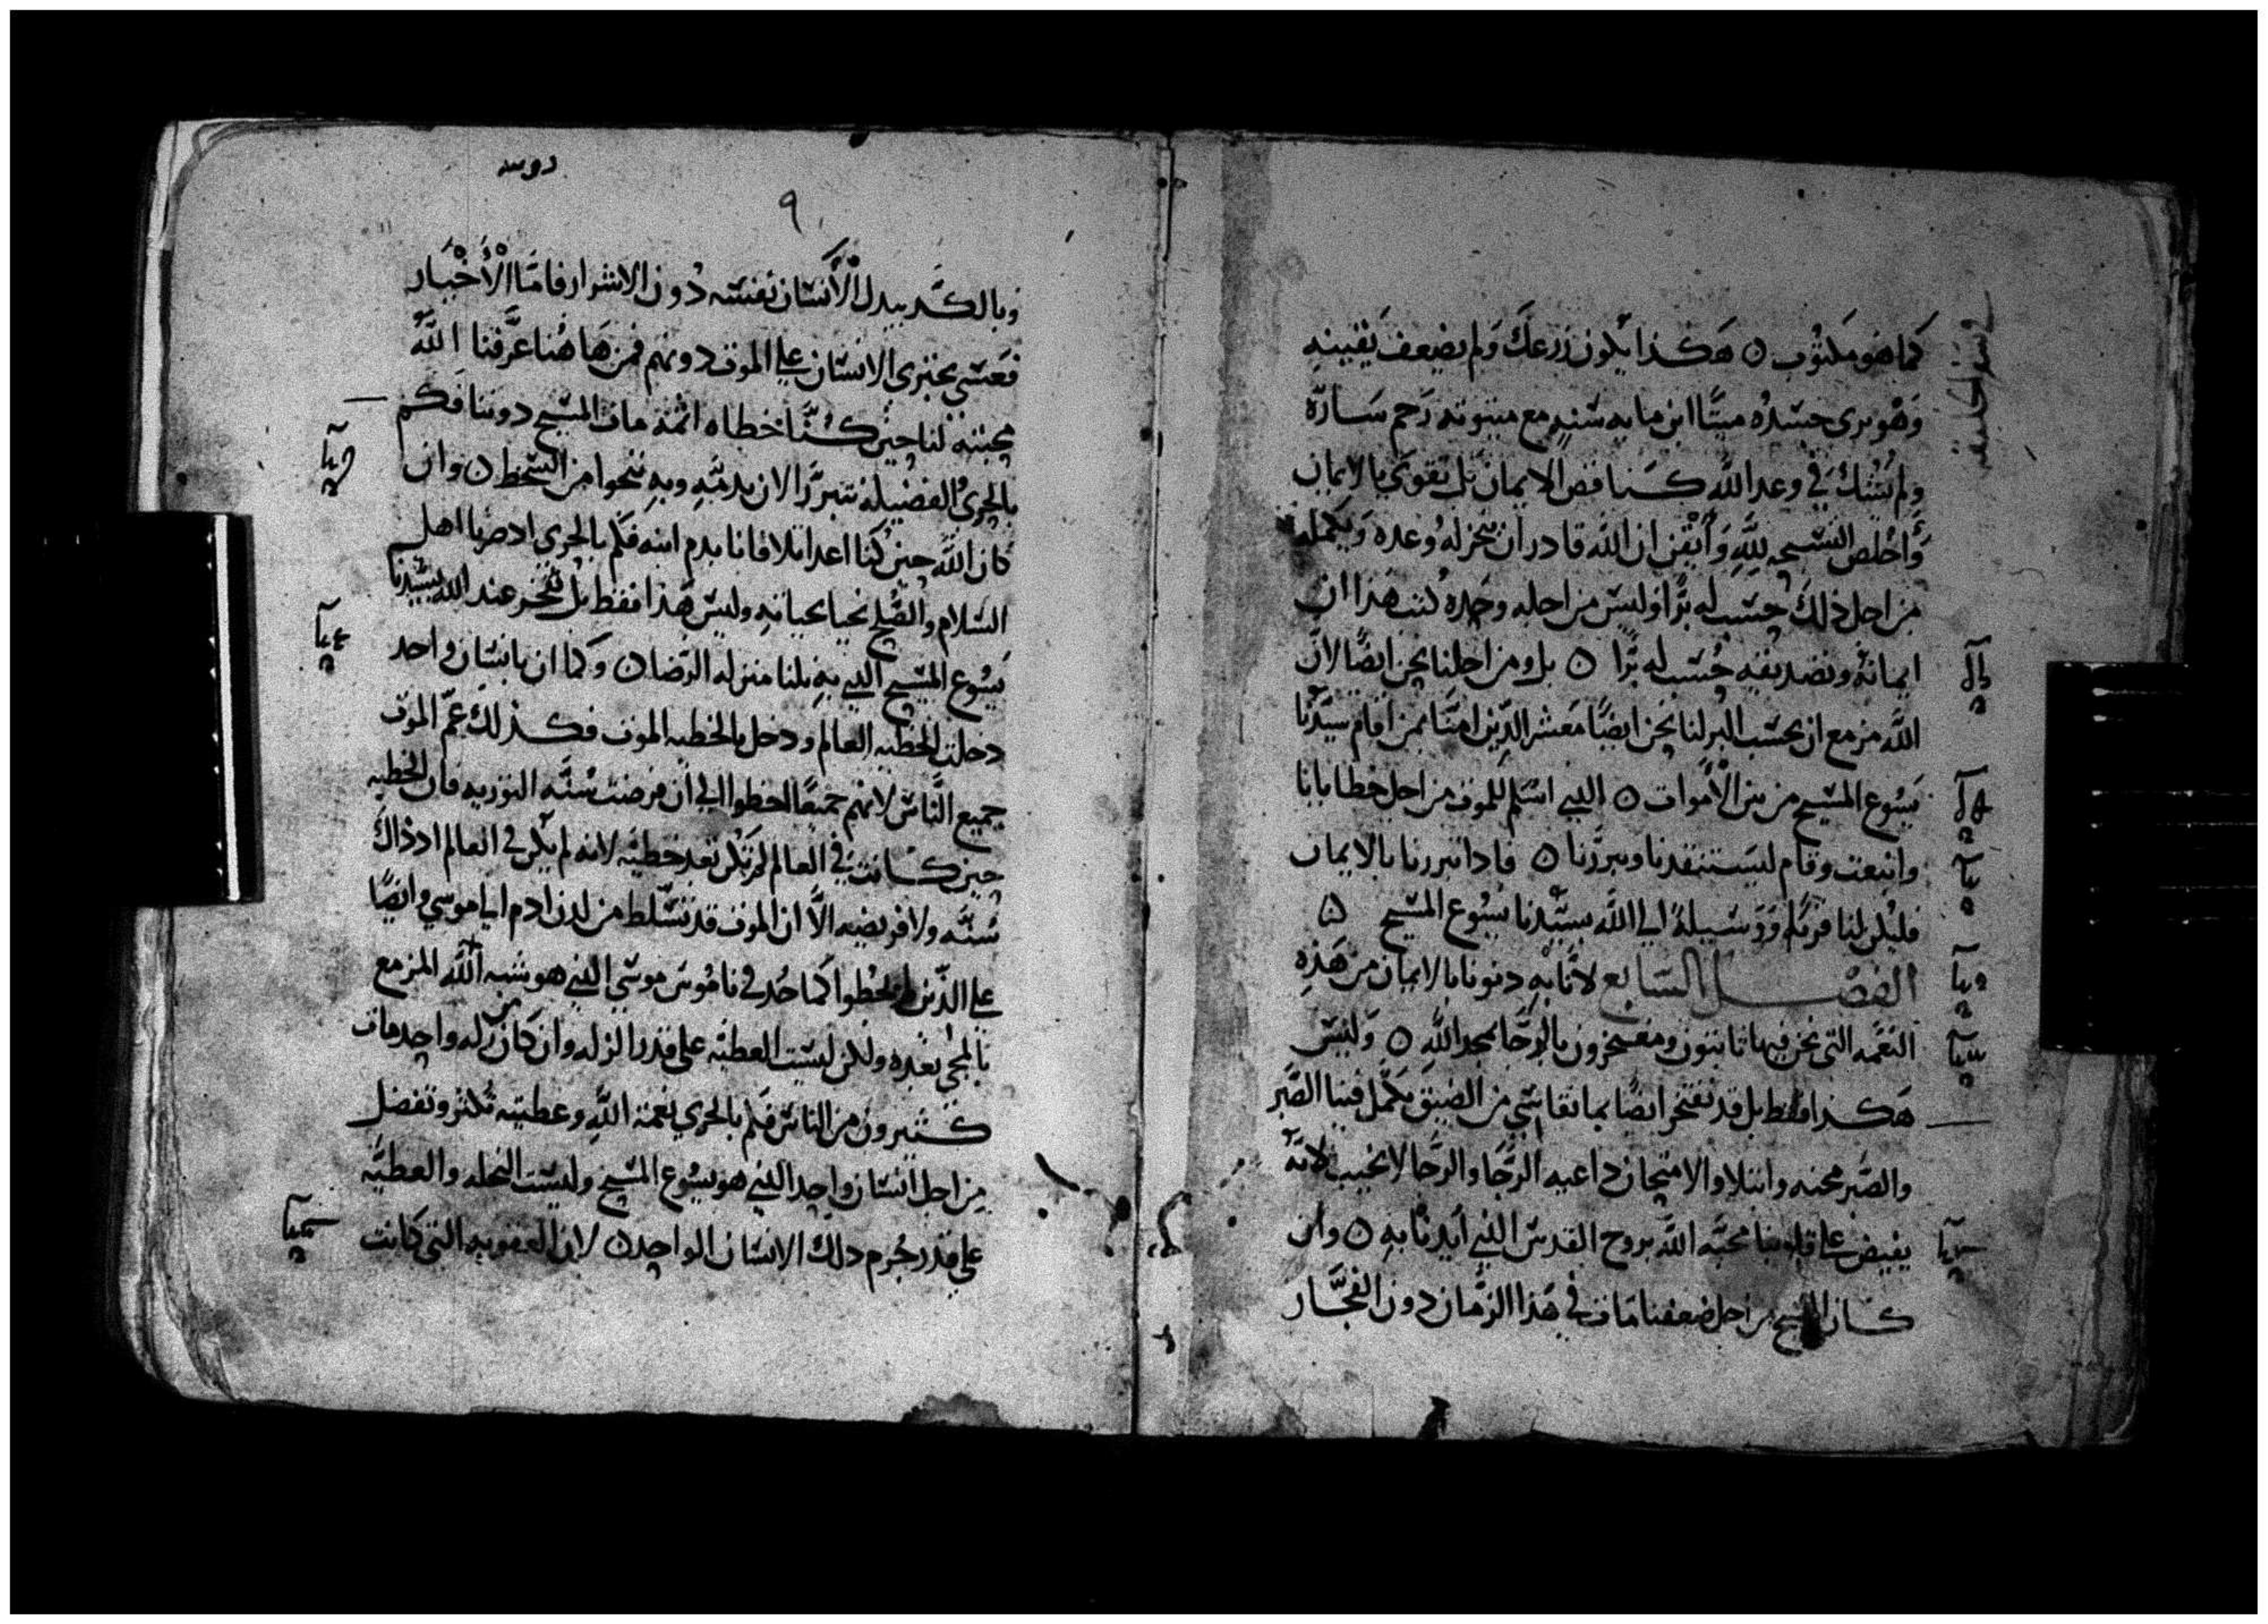 كما هو مكتوب ٥ هكذا يكون زرعك ولم يضعف يقينه
وهو يري جسده ميتا ابن مايه سنه مع ميتوته رحم ساره
ولم يشك في وعد الله كناقص الايمان بل تقوي بالايمان
واخلص التسبحه لله وايقن ان الله قادر ان ينجز له وعده ويكمله
من اجل ذلك حسب له برا وليس من اجله وحده كتب هذا ان
ايمانه وتصديقه حسب له برا ٥ بل ومن اجلنا نحن ايضا لان
الله مزمع ان يحسب البر لنا نحن ايضا معشر الذين امنا بمن اقام سيدنا
يسوع المسيح من بين الاموات ٥ الذي اسلم للموت من اجل خطايانا
وانبعث وقام ليستنقدنا ويبررنا ٥ فاذا تبررنا بالايمان
فليكن لنا قربه ووسيلة الي الله بسيدنا يسوع المسيح ٥
الفصل السابع لانا به دنونا بالايمان من هذه
النعمه التي نحن فيها ثابتون ومفتخرون بالرجا بمجد الله ٥ وليس
هكذا فقط بل قد نفتخر ايضا بما نقاسي من الضيق يكمل فينا الصبر
والصبر محنه وابتلا والامتحان داعيه الرجا والرجا لا يخيب لانه
يفيض علي قلوبنا محبه الله بروح القدس الذي ايدنا به ٥ وان
كان المسيح من اجل ضعفنا مات في هذا الزمان دون الفجار
٩
وبالكد يبدل الانسان نفسه دون الاشرار فاما الاخيار
فعسي يجتري الانسان علي الموت دونهم فمن هاهنا عرفنا الله
محبته لنا حين كنا خطاه اثمة مات المسيح دوننا فكم
بالحري الفضيله نتبرر الان بدمه وبه ننجوا من السخط ٥ وان
كان الله حين كنا اعدا تلافانا بدم ابنه فكم بالحري اذ صرنا اهل
السلام والصلح نحيا بحياته وليس هذا فقط بل نفتخر عند الله بسيدنا
يسوع المسيح الذي به نلنا منزله الرضا ٥ وكما ان بانسان واحد
دخلت الخطيه العالم ودخل بالخطيه الموت فكذلك عم الموت
جميع الناس لانهم جميعا اخطوا الي ان فرضت سنه التوريه فان الخطيه
حين كانت في العالم لم تكن تعد خطيه لانه لم يكن في العالم اذ ذاك
سنه ولا فريضه الا ان الموت قد تسلط من لدن ادم الي موسي وايضا
علي الذين لم يخطوا كما حد في ناموس موسي الذي هو شبه الله المزمع
بالمجي بعده ولكن ليست العطيه علي قدر الزله وان كان من زله واحد مات
كثيرون من الناس فكم بالحري نعمة الله وعطيته تكثر وتفضل
من اجل انسان واحد الذي هو يسوع المسيح وليست النحله والعطيه
علي قدر جرم ذلك الانسان الواحد ٥ لان العقوبه التي كانت